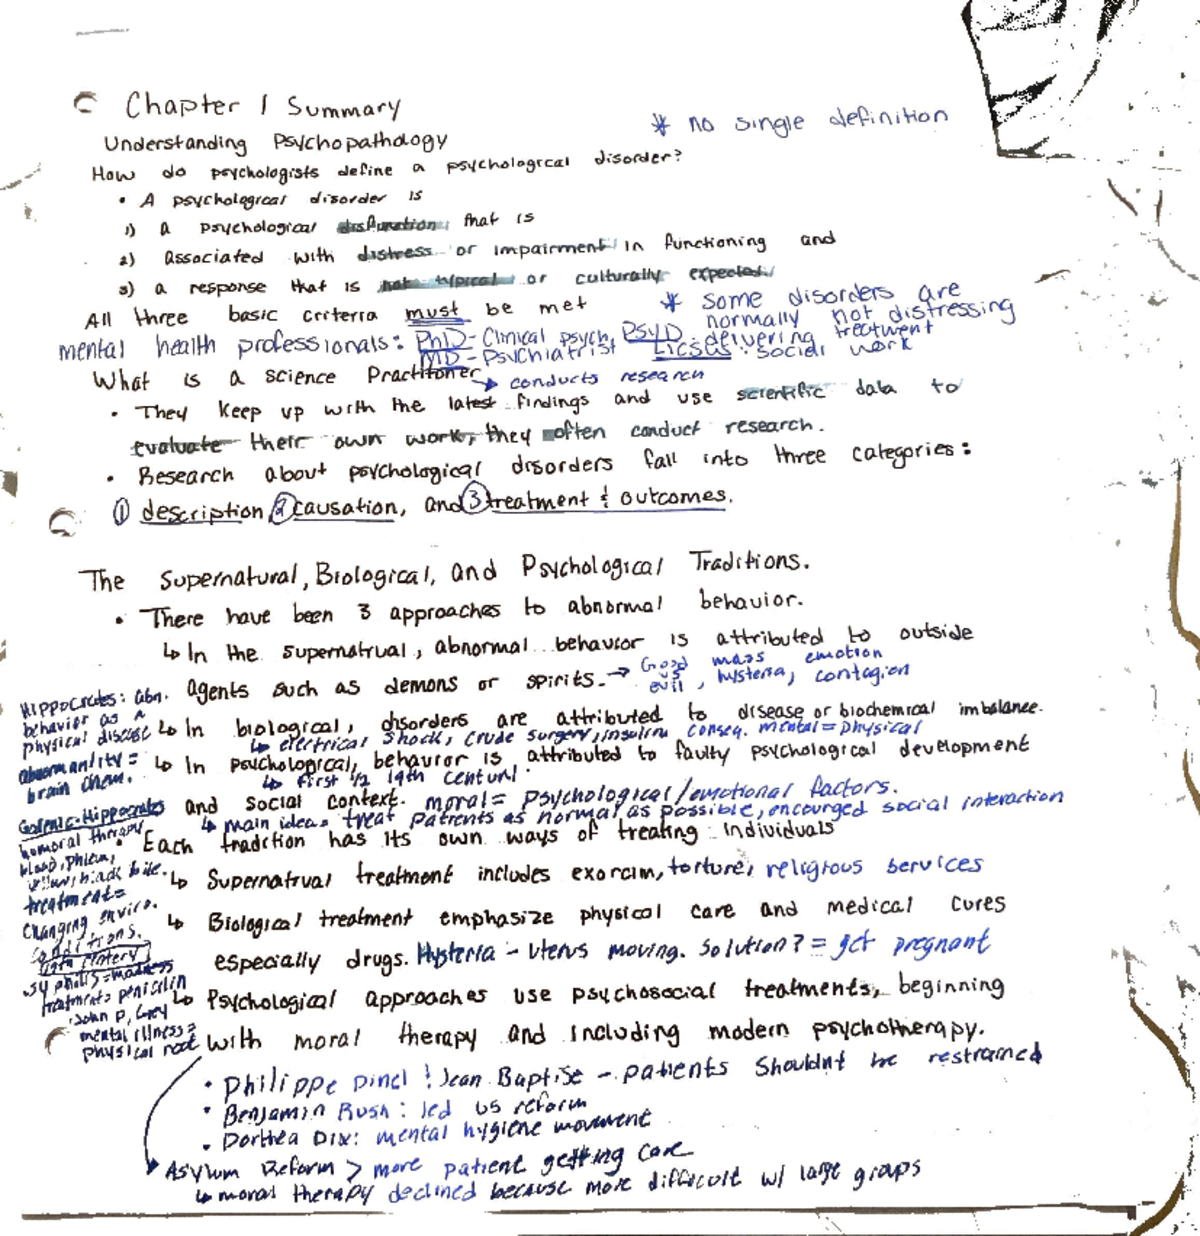 Chapter 1 Summary
* no single definition
Understanding Psychopathology
How do psychologists define a psychological disorder?
• A psychological disorder is
1) a psychological disfunction that is
2) associated with distress or impairment in functioning and
3) a response that is not typical or culturally expected.
All three basic criteria must be met
* some disorders are
normally not distressing
mental health professionals: PhD - Clinical psych, PsyD - delivering treatment
MD - Psychiatrist LICSWs: social work
What is a science Practitoner
→ conducts research
• They keep up with the latest findings and use scientific data to
evaluate their own work, they often conduct research.
• Research about psychological disorders fall into three categories:
① description, ② causation, and ③ treatment & outcomes.
The Supernatural, Biological, and Psychological Traditions.
• There have been 3 approaches to abnormal behavior.
↳ In the supernatrual, abnormal behavior is attributed to outside
agents such as demons or spirits. → Good vs evil, mass hysteria, emotion contagion
↳ In biological, disorders are attributed to disease or biochemical imbalance.
↳ electrical shock, crude surgery, insulin conseq. mental = physical
↳ In psychological, behavior is attributed to faulty psychological development
↳ first 1/2 19th centuri
and social context. moral = psychological/emotional factors.
↳ main idea = treat patients as normal as possible, encourged social interaction
• Each tradition has its own ways of treating individuals
↳ Supernatrual treatment includes exorcim, torture, religious services
↳ Biological treatment emphasize physical care and medical cures
especially drugs. Hysteria - uterus moving. Solution? = get pregnant
↳ Psychological approaches use psychosocial treatments, beginning
with moral therapy and including modern psychotherapy.
Hippocrates: abn.
behavior as a
physical disease
abnormanlity =
brain chem.
Galenic-Hippocrates
homoral therapy
blood, phlem,
yellow, black bile.
treatment =
changing enviro.
conditions.
19th centery
syphilis = madness
treatment = penicilin
John P. Grey
mental illness =
physical root
• Philippe Pinel & Jean Baptise - patients shouldnt be restrained
• Benjamin Rush: led US reform
• Dorthea Dix: mental hygiene movement
Asylum Reform > more patient getting care
↳ moral therapy declined because more difficult w/ large groups